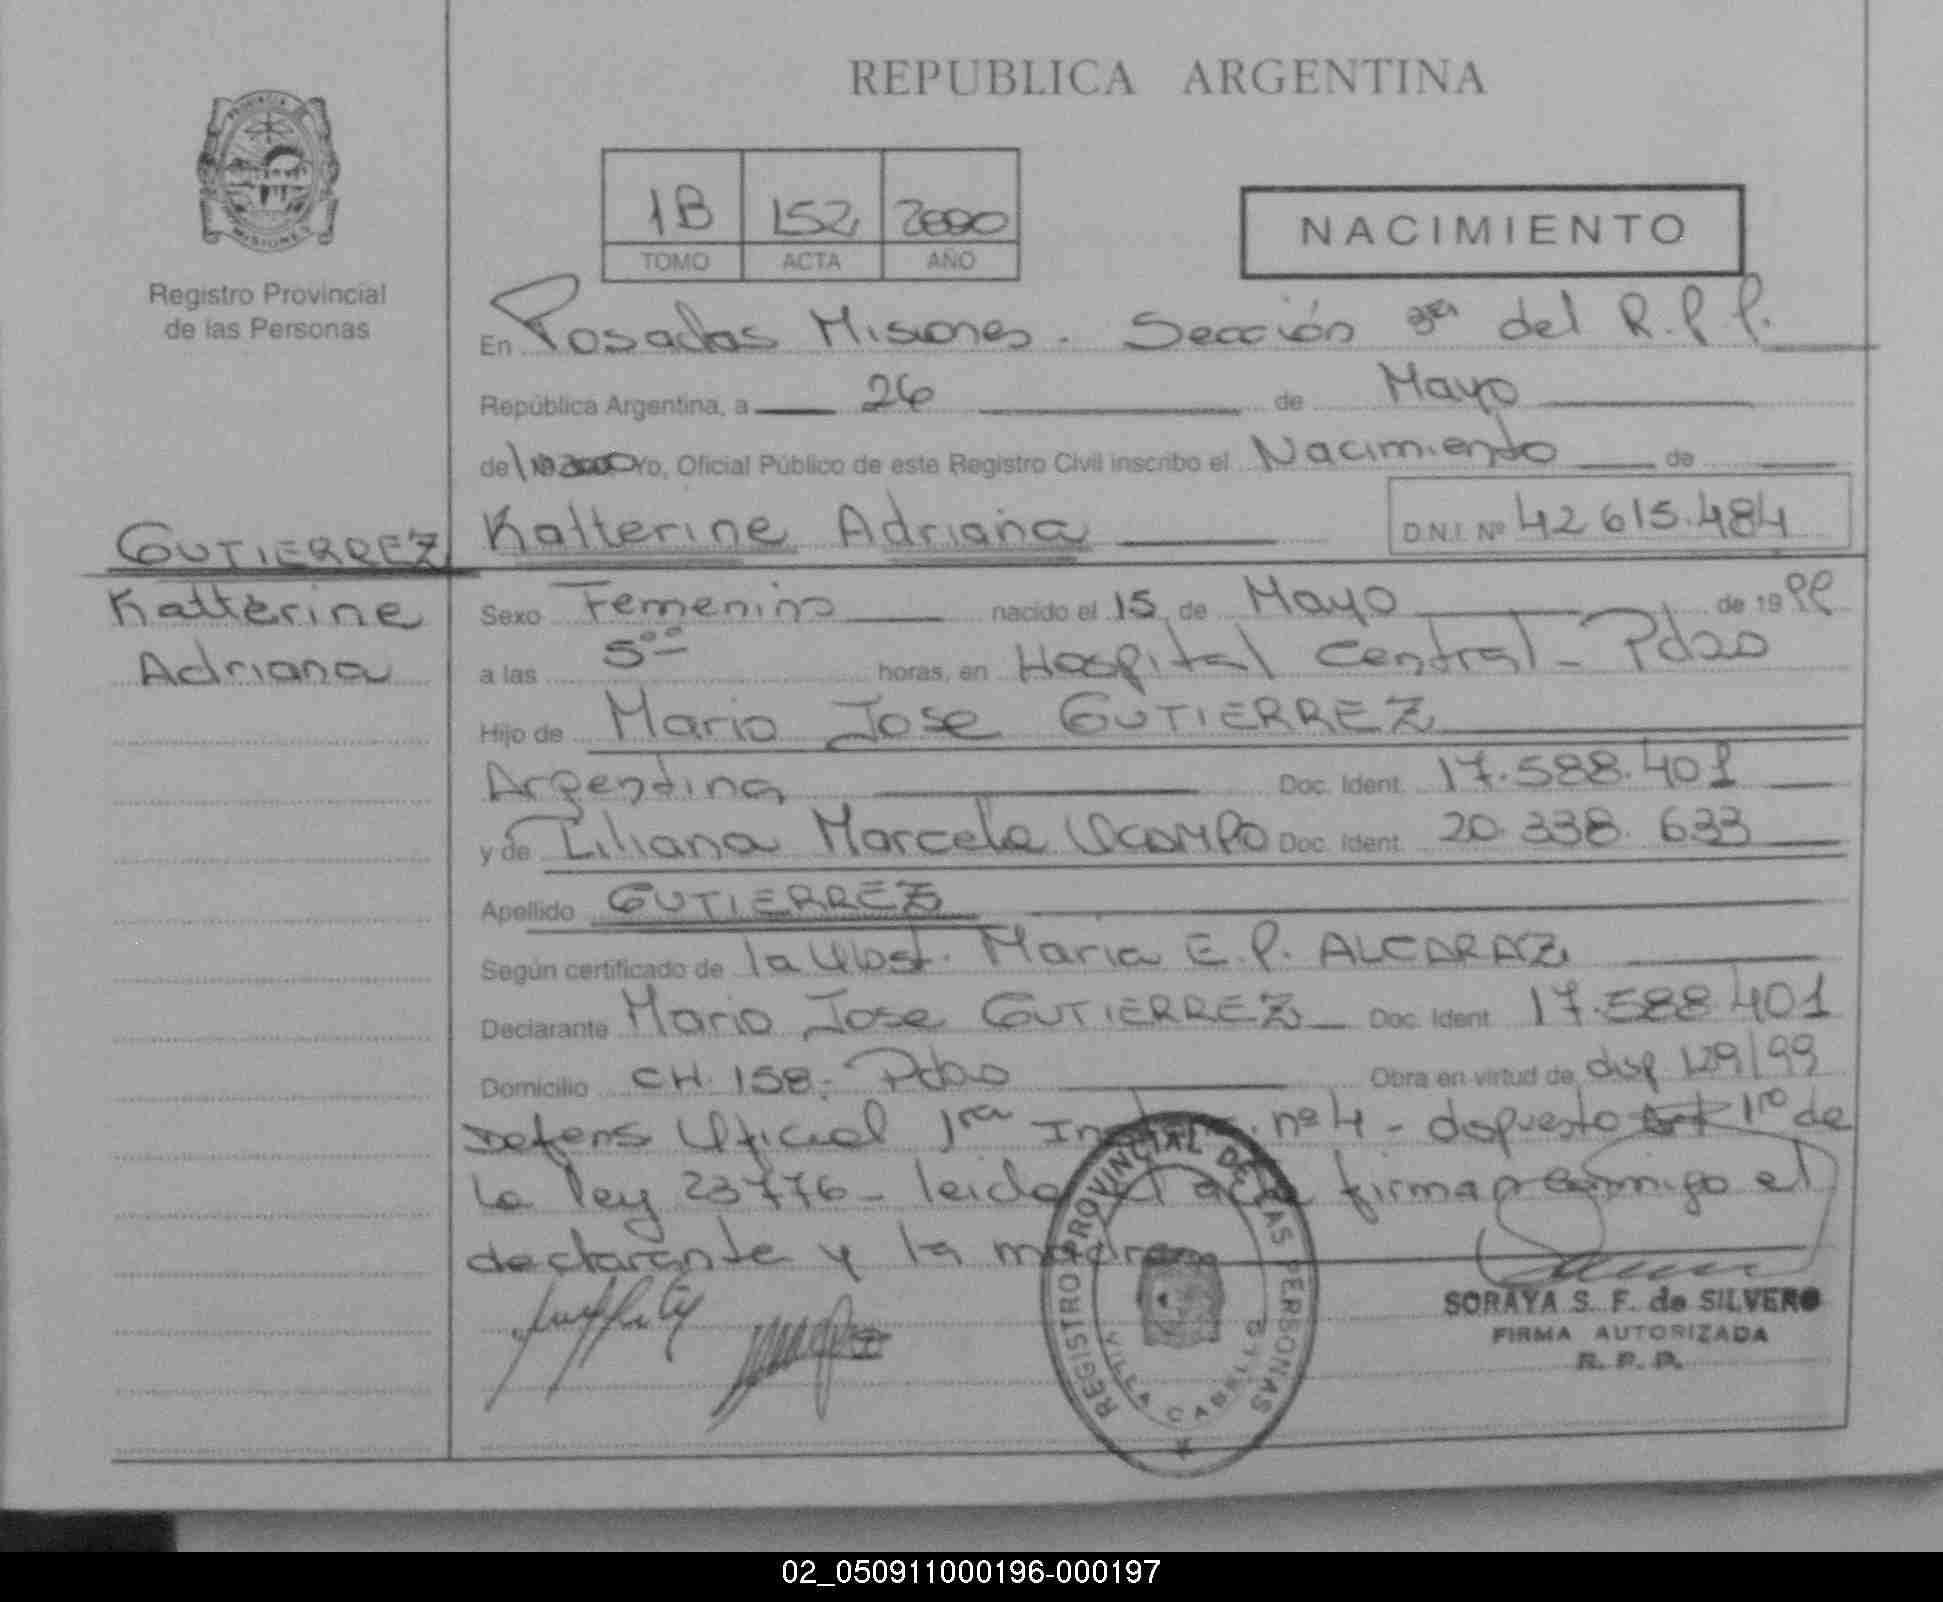 REPUBLICA ARGENTINA
PROVINCIA
MISIONES
Registro Provincial
de las Personas
1B 152 2000
TOMO ACTA AÑO
NACIMIENTO
En Posadas Misiones. Sección 3ra del R.P.P.
República Argentina, a 26 de Mayo
de 2000 Yo, Oficial Público de este Registro Civil inscribo el Nacimiento de
GUTIERREZ
Katterine
Adriana
Katterine Adriana D.N.I. Nº 42 615.484
Sexo Femenino nacido el 15 de Mayo de 1999
a las 5ºº horas, en Hospital Central - Pdas
Hijo de Mario Jose GUTIERREZ
Argentina Doc. Ident. 17.588.401
y de Liliana Marcela OCAMPO Doc. Ident. 20.338.633
Apellido GUTIERREZ
Según certificado de la Obst. Maria E. P. ALCARAZ
Declarante Mario Jose GUTIERREZ Doc. Ident. 17.588.401
Domicilio CH. 158 - Pdas Obra en virtud de disp 129/99
Defens Oficial 1ra nº 4 - dispuesto Art 1ro de
la ley 23776 - leida el acta firman conmigo el
declarante y la madre
REGISTRO PROVINCIAL DE LAS PERSONAS
VILLA CABELLO
SORAYA S. F. de SILVERO
FIRMA AUTORIZADA
R. P. P.
02_050911000196-000197